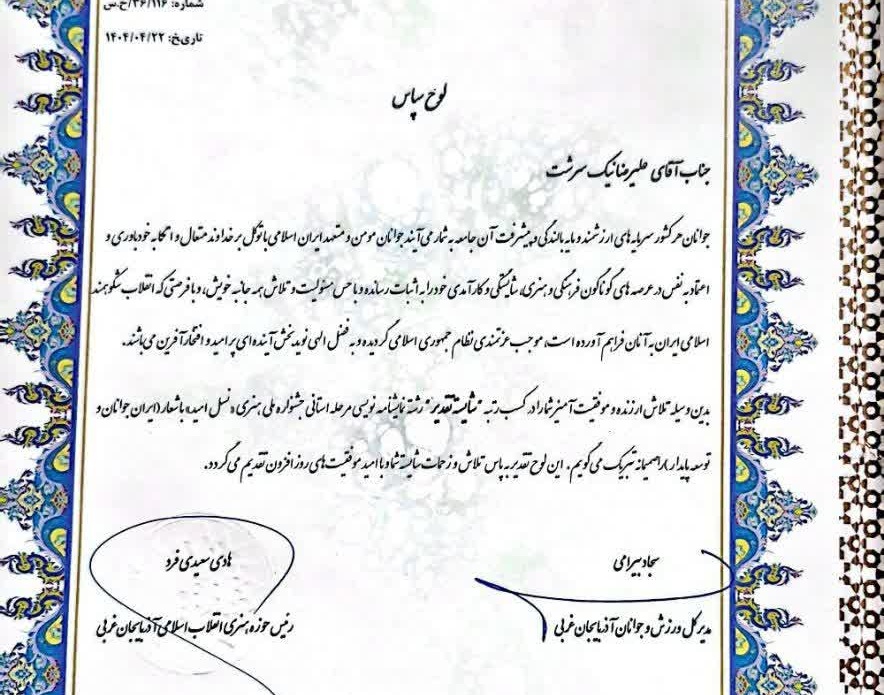 شماره: ۳۶/۱۱۶/خ.س
تاریخ: ۱۴۰۴/۰۴/۲۲
لوح سپاس
جناب آقای علیرضا نیک سرشت
جوانان هر کشور سرمایه های ارزشمند و مایه بالندگی و پیشرفت آن جامعه به شمار می آیند جوانان مومن و متعهد ایران اسلامی با توکل بر خداوند متعال و اتکا به خودباوری و
اعتماد به نفس در عرصه های گوناگون فرهنگی و هنری، شایستگی و کارآمدی خود را به اثبات رسانده و با حس مسئولیت و تلاش همه جانبه خویش، و با فرصتی که انقلاب شکوهمند
اسلامی ایران به آنان فراهم آورده است، موجب عزتمندی نظام جمهوری اسلامی گردیده و به فضل الهی نوید بخش آینده ای پر امید و افتخارآفرین می باشند.
بدین وسیله تلاش ارزنده و موفقیت آمیز شما را در کسب رتبه "شایسته تقدیر" رشته نمایشنامه نویسی مرحله استانی جشنواره ملی هنری «نسل امید» با شعار (ایران جوانان و
توسعه پایدار) را صمیمانه تبریک می گویم. این لوح تقدیر به پاس تلاش و زحمات شایسته شما و با امید موفقیت های روز افزون تقدیم می گردد.
سجاد بیرامی
مدیر کل ورزش و جوانان آذربایجان غربی
هادی سعیدی فرد
رئیس حوزه هنری انقلاب اسلامی آذربایجان غربی